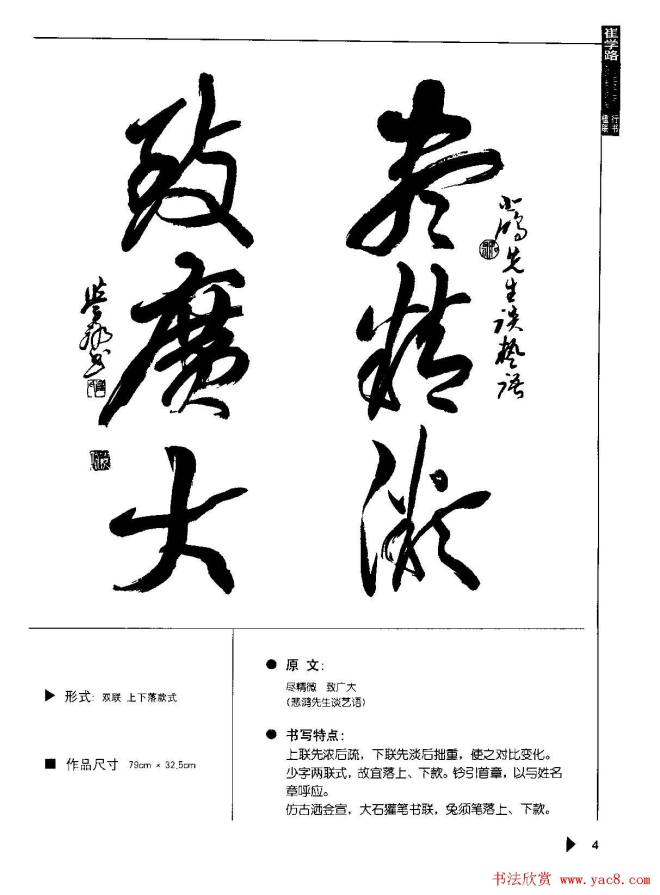 崔学路
行书
楹联
尽精微
致广大
先生谈艺语
▶ 形式: 双联 上下落款式
■ 作品尺寸 79cm × 32,5cm
● 原 文:
尽精微 致广大
(悲鸿先生谈艺语)
● 书写特点:
上联先浓后疏，下联先淡后拙重，使之对比变化。
少字两联式，故宜落上、下款。钤引首章，以与姓名
章呼应。
仿古洒金宣，大石獾笔书联，兔须笔落上、下款。
▶ 4
书法欣赏 www.yac8.com